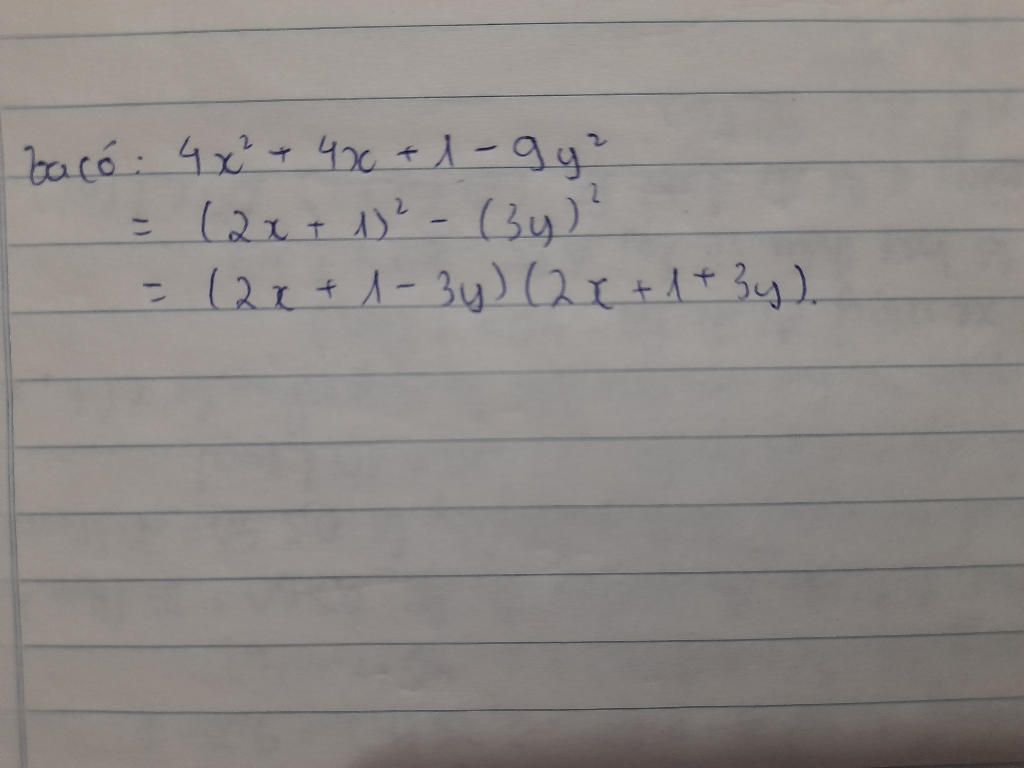 Ta có: 4x² + 4x + 1 - 9y²
= (2x + 1)² - (3y)²
= (2x + 1 - 3y)(2x + 1 + 3y).